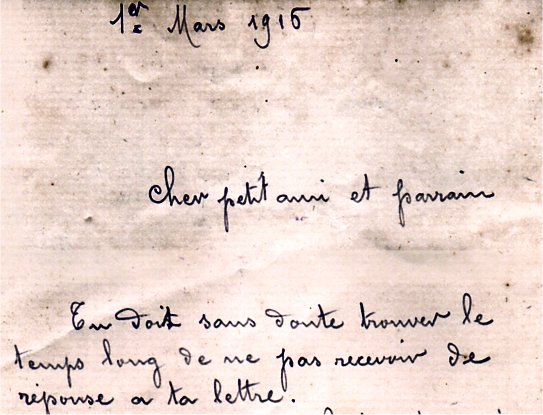 1er Mars 1916
Cher petit ami et parrain
Tu doit sans doute trouver le
temps long de ne pas recevoir de
réponse a ta lettre.